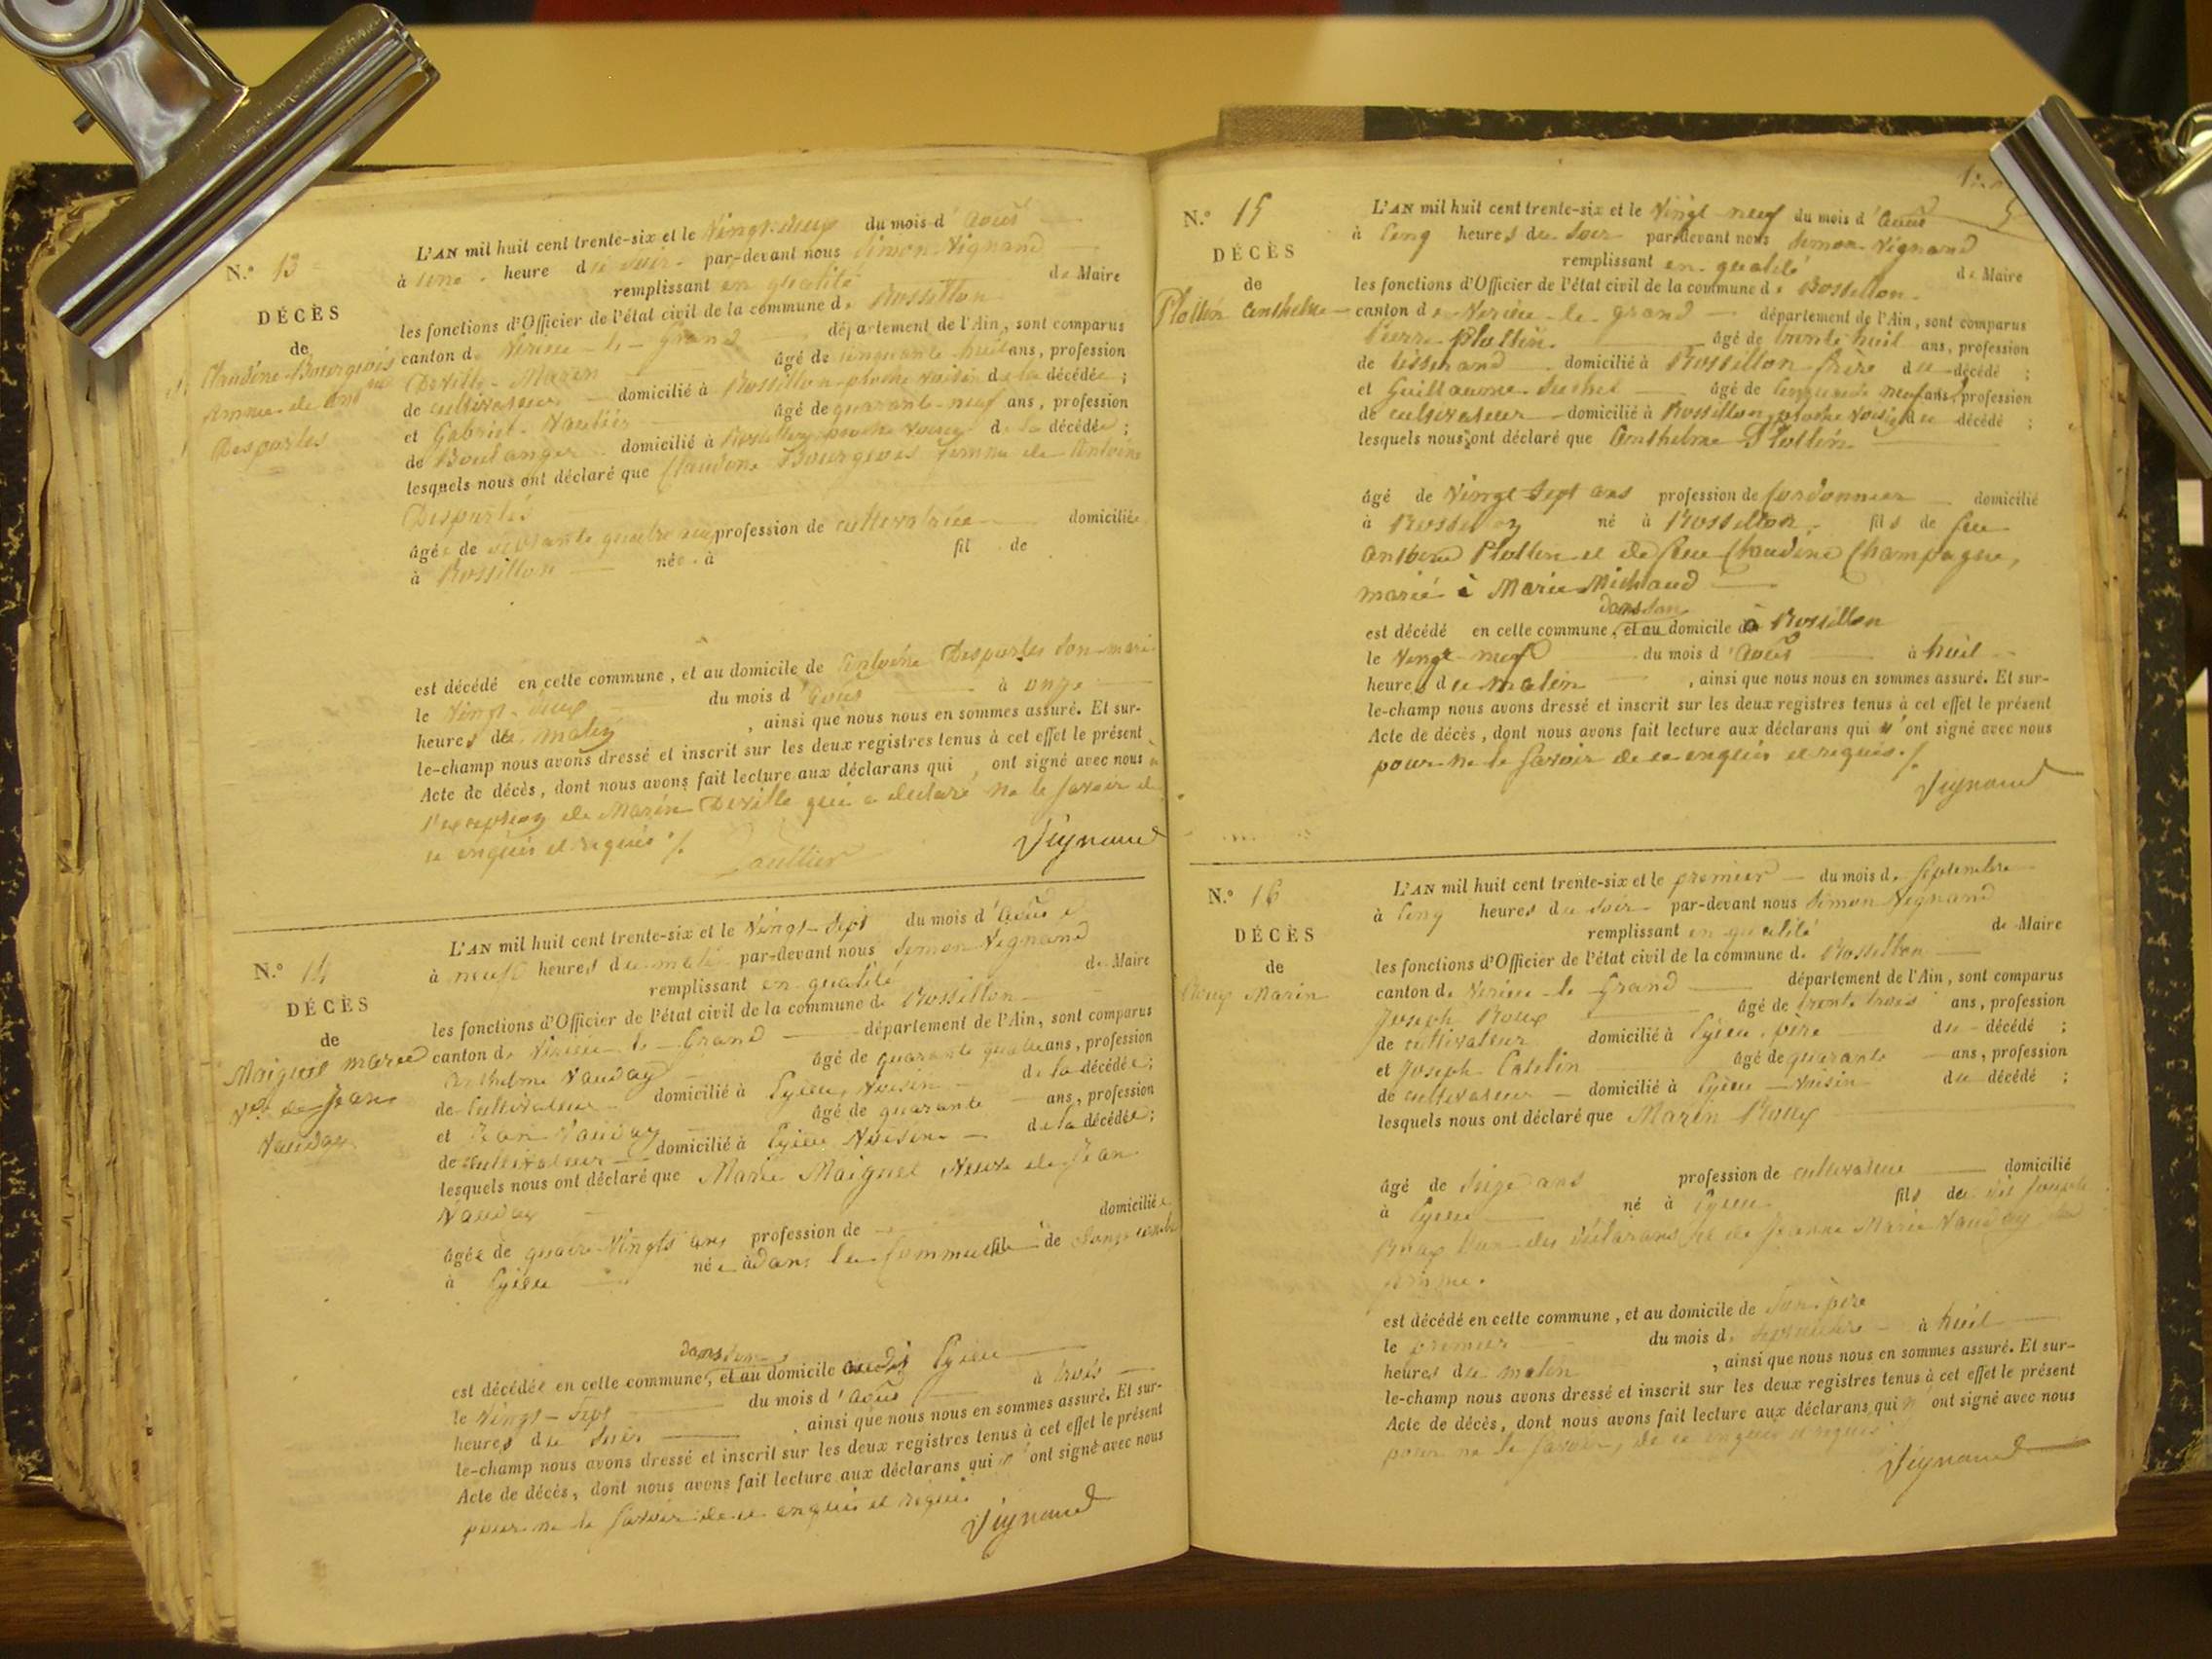 N.° 13
DÉCÈS
de
Claudine Bourgeois
femme de Ant
Desportes
L'AN mil huit cent trente-six et le Vingt-deux du mois d' Août
à une heure du soir par-devant nous Simon Vignand
remplissant en qualité de Maire
les fonctions d'Officier de l'état civil de la commune de Rossillon
canton de Virieu-le-Grand département de l'Ain, sont comparus
Deville Marin âgé de cinquante huit ans, profession
de cultivateur domicilié à Rossillon proche voisin de la décédée ;
et Gabriel Vautier âgé de quarante-neuf ans, profession
de Boulanger domicilié à Rossillon proche voisin de la décédée ;
lesquels nous ont déclaré que Claudine Bourgeois femme de Antoine
Desportes
âgée de soixante quatre ans profession de cultivatrice domiciliée
à Rossillon née à fil de
est décédé en cette commune, et au domicile de Antoine Desportes son mari
le Vingt-deux du mois d' Août à onze
heures du matin, ainsi que nous nous en sommes assuré. Et sur-
le-champ nous avons dressé et inscrit sur les deux registres tenus à cet effet le présent
Acte de décès, dont nous avons fait lecture aux déclarans qui ont signé avec nous à
l'exception de Marin Deville qui a déclaré ne le savoir de
ce enquis et requis ./.
Vignand
N.° 14
DÉCÈS
de
Maignet marie
Ve. de Jean
Vauday
L'AN mil huit cent trente-six et le Vingt-Sept du mois d' Août
à neuf heures du matin par-devant nous Simon Vignand
remplissant en qualité de Maire
les fonctions d'Officier de l'état civil de la commune de Rossillon
canton de Virieu-le-Grand département de l'Ain, sont comparus
anthelme Vauday âgé de quarante quatre ans, profession
de Cultivateur domicilié à Egieu, Voisin de la décédée ;
et Jean Vauday âgé de quarante ans, profession
de cultivateur domicilié à Egieu Voisin de la décédée ;
lesquels nous ont déclaré que Marie Maignet Veuve de Jean
Vauday
âgée de quatre-Vingts ans profession de domiciliée
à Egieu née à dans la Commune fil de
dans son
est décédée en cette commune, et au domicile audit Egieu
le Vingt-Sept du mois d' Août à trois
heures du soir, ainsi que nous nous en sommes assuré. Et sur-
le-champ nous avons dressé et inscrit sur les deux registres tenus à cet effet le présent
Acte de décès, dont nous avons fait lecture aux déclarans qui n' ont signé avec nous
pour ne le savoir de ce enquis et requis
Vignand
N.° 15
DÉCÈS
de
Plottin Anthelme
L'AN mil huit cent trente-six et le Vingt-neuf du mois d' Août
à Cinq heures du soir par-devant nous Simon Vignand
remplissant en qualité de Maire
les fonctions d'Officier de l'état civil de la commune de Rossillon
canton de Virieu-le-grand département de l'Ain, sont comparus
Pierre Plottin âgé de trente huit ans, profession
de tisserand domicilié à Rossillon frère du décédé ;
et Guillaume Suchet âgé de Cinquante neuf ans, profession
de cultivateur domicilié à Rossillon, proche voisin du décédé ;
lesquels nous ont déclaré que Anthelme Plottin
âgé de Vingt Sept ans profession de Cordonnier domicilié
à Rossillon né à Rossillon fils de feu
antoine Plottin et de feue Claudine Champagne,
marié à Marie Michaud
dans son
est décédé en cette commune, et au domicile à Rossillon
le Vingt-neuf du mois d' Août à huit
heures du matin, ainsi que nous nous en sommes assuré. Et sur-
le-champ nous avons dressé et inscrit sur les deux registres tenus à cet effet le présent
Acte de décès, dont nous avons fait lecture aux déclarans qui n' ont signé avec nous
pour ne le savoir de ce enquis et requis ./.
Vignand
N.° 16
DÉCÈS
de
Roux Marin
L'AN mil huit cent trente-six et le premier du mois de Septembre
à Cinq heures du soir par-devant nous Simon Vignand
remplissant en qualité de Maire
les fonctions d'Officier de l'état civil de la commune de Rossillon
canton de Virieu-le-Grand département de l'Ain, sont comparus
Joseph Roux âgé de trente trois ans, profession
de cultivateur domicilié à Egieu, père du décédé ;
et Joseph Catelin âgé de quarante ans, profession
de cultivateur domicilié à Egieu Voisin du décédé ;
lesquels nous ont déclaré que Marin Roux
âgé de Seize ans profession de cultivateur domicilié
à Egieu né à Egieu fils de dit Joseph
Roux l'un des déclarans et de Jeanne Marie Vauday sa
femme.
est décédé en cette commune, et au domicile de Son père
le premier du mois de septembre à huit
heures du matin, ainsi que nous nous en sommes assuré. Et sur-
le-champ nous avons dressé et inscrit sur les deux registres tenus à cet effet le présent
Acte de décès, dont nous avons fait lecture aux déclarans qui n' ont signé avec nous
pour ne le savoir, de ce enquis et requis
Vignand